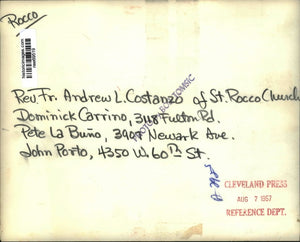 Rocco
Rev. Fr. Andrew L. Costanzo of St. Rocco Church
Dominick Carrino, 3118 Fulton Rd.
Pete La Buño, 3907 Newark Ave.
John Porto, 4350 W. 60th St.
CLEVELAND PRESS
AUG 7 1957
REFERENCE DEPT.